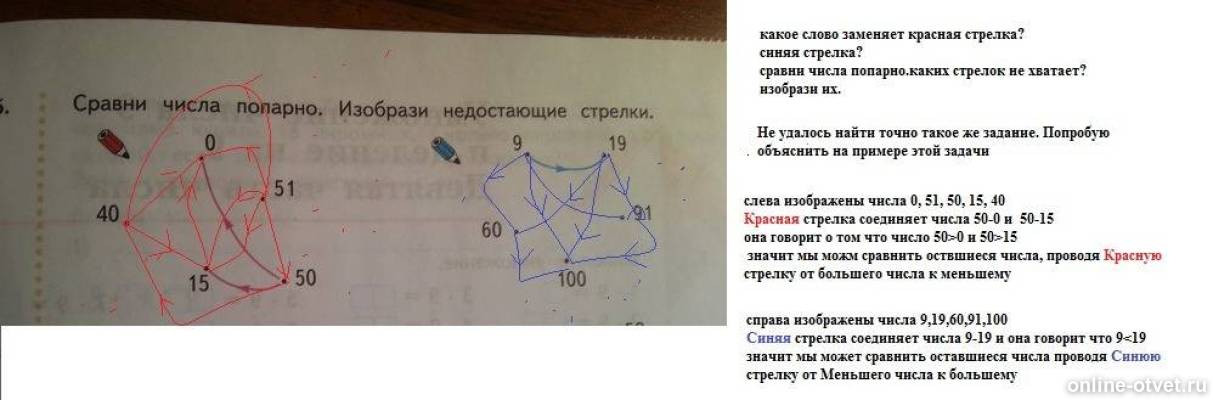 Сравни числа попарно. Изобрази недостающие стрелки.
0
51
40
15
50
9
19
60
91
100
какое слово заменяет красная стрелка?
синяя стрелка?
сравни числа попарно.каких стрелок не хватает?
изобрази их.
Не удалось найти точно такое же задание. Попробую
. объяснить на примере этой задачи
слева изображены числа 0, 51, 50, 15, 40
Красная стрелка соединяет числа 50-0 и 50-15
она говорит о том что число 50>0 и 50>15
значит мы можм сравнить оствшиеся числа, проводя Красную
стрелку от большего числа к меньшему
справа изображены числа 9,19,60,91,100
Синяя стрелка соединяет числа 9-19 и она говорит что 9<19
значит мы может сравнить оставшиеся числа проводя Синюю
стрелку от Меньшего числа к большему
online-otvet.ru